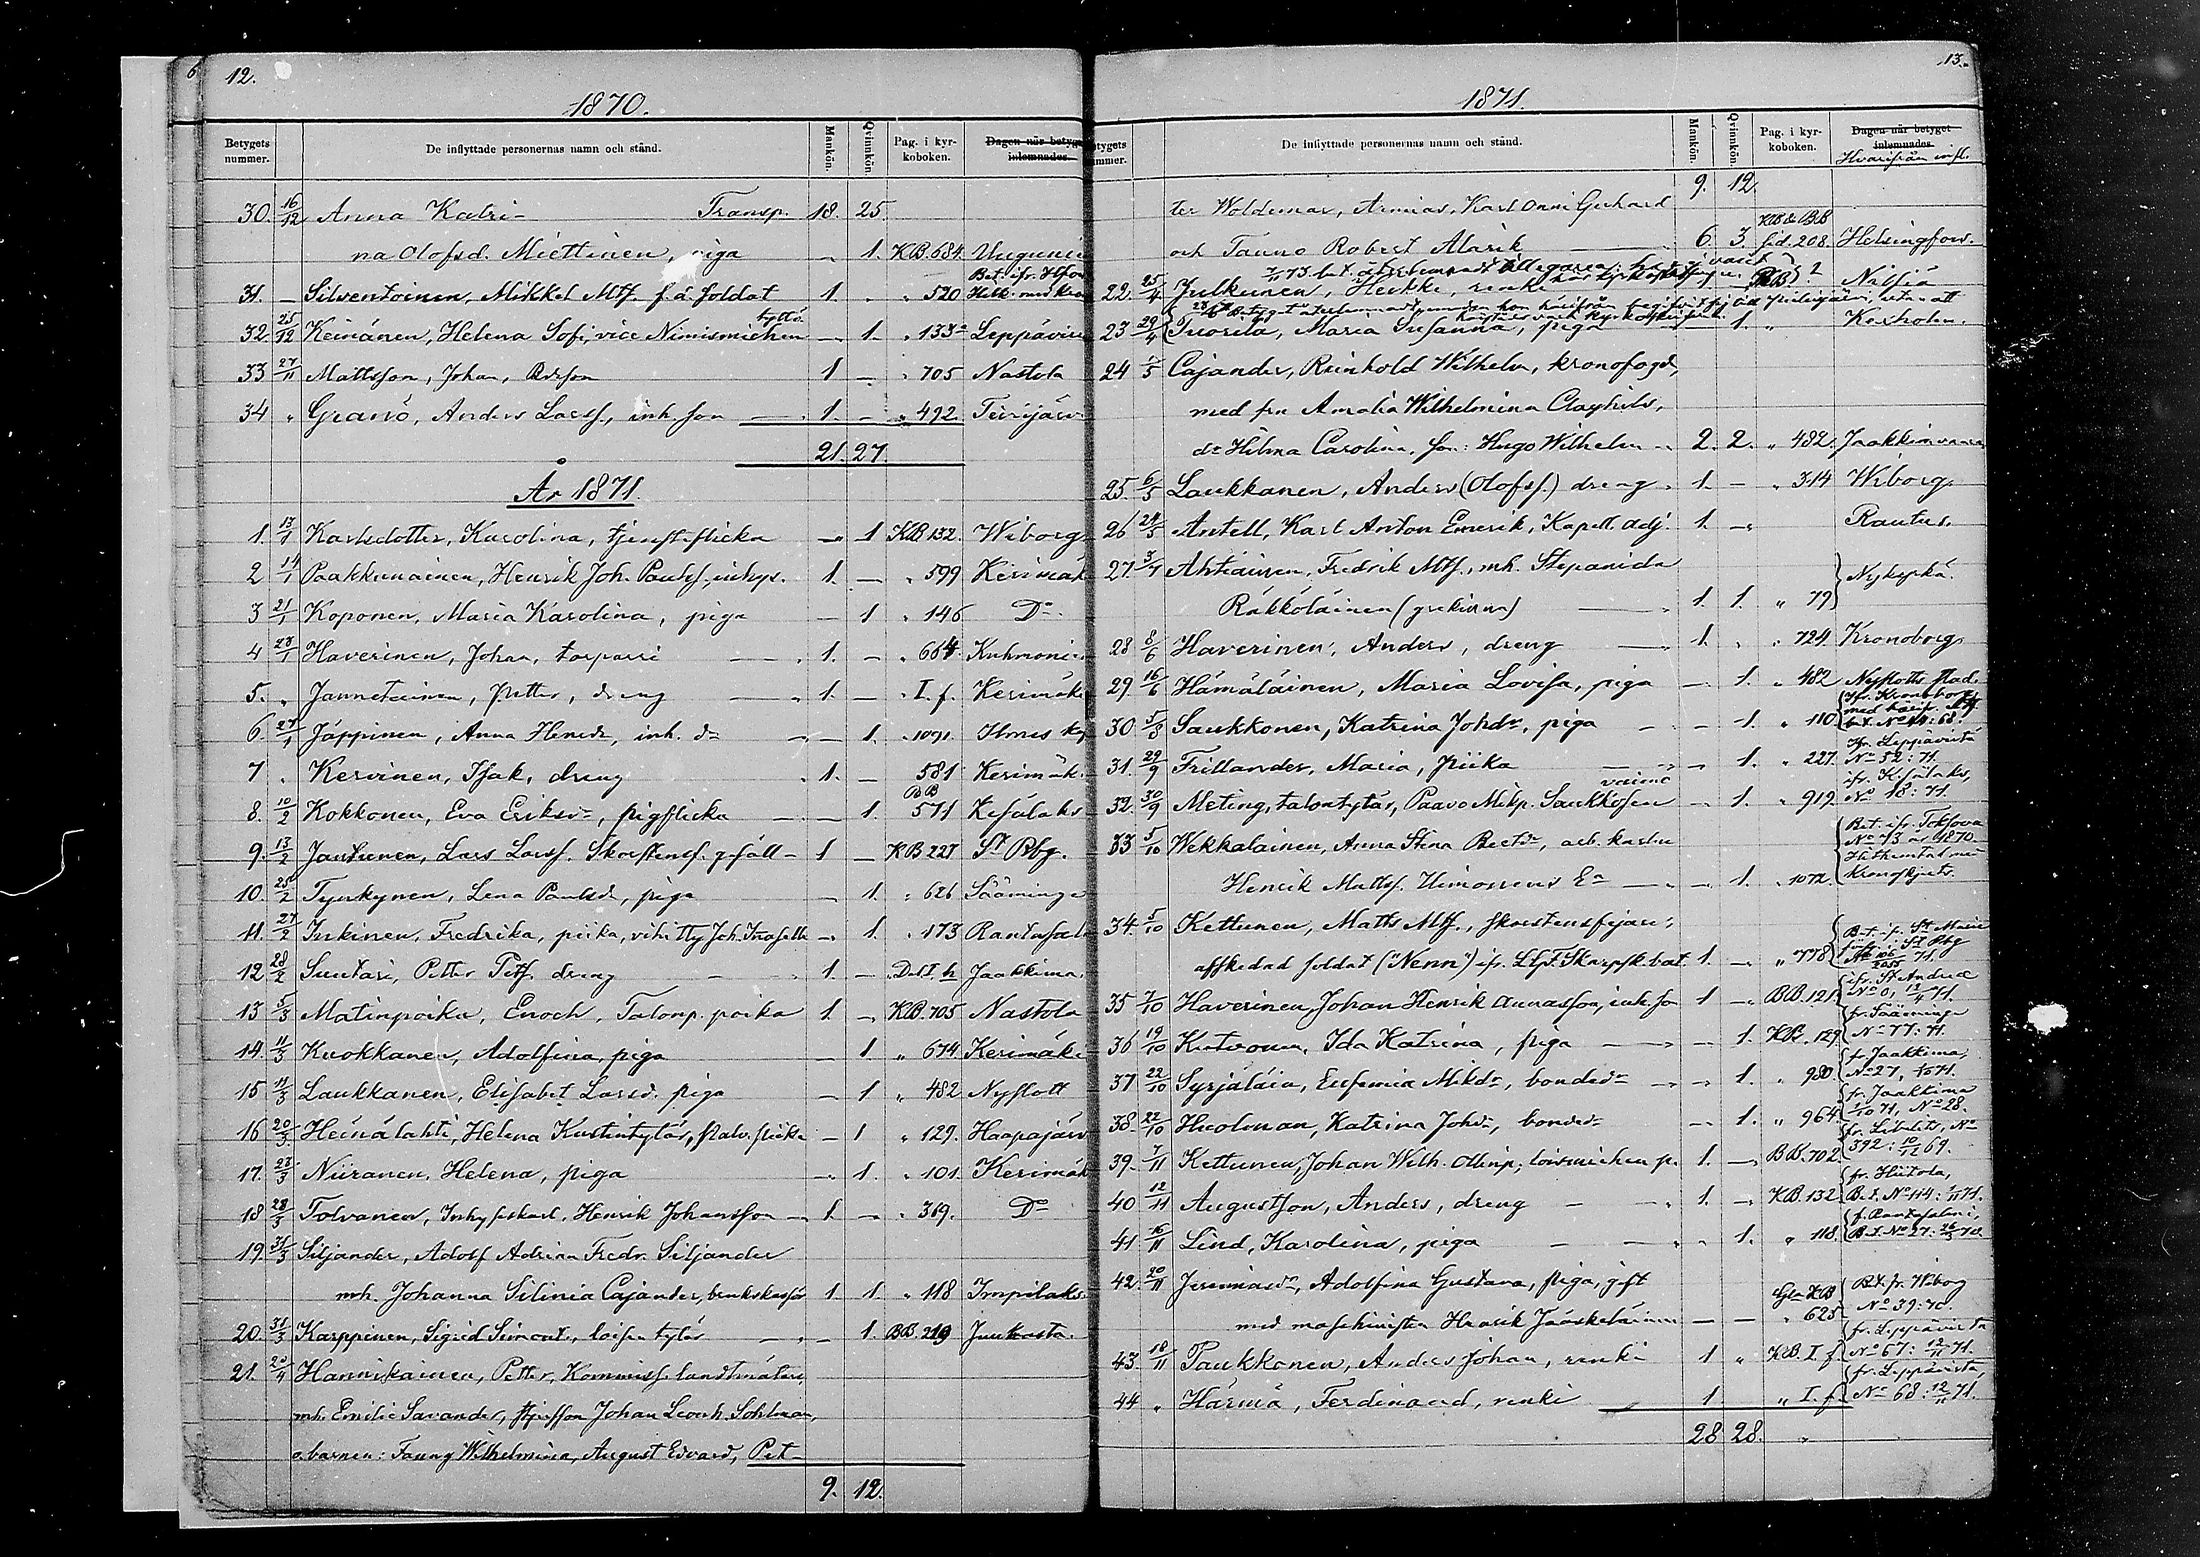 6
12.
1870.
Betygets nummer.
De inflyttade personernas namn och stånd.
Mankön.
Qvinnkön.
Pag. i kyrkoboken.
Dagen när betyg inlemnades.
30. 16/12 Anna Katri- Transp. 18. 25.
na Olofsd. Miettinen, piga - 1. KB. 684.
31. - Silventoinen, Mikkel Mtss. f.d. soldat 1. - " 520
32. 25/12 Keinänen, Helena Sofi, vice Nimismiehen tyttö - 1. " 133 Leppävir
33 27/11 Mattsson, Johan, 1 - " 705 Nastola
34 " Granö, Anders Larss., inh. son 1. - " 492.
21. 27.
År 1871.
1. 13/1 Karlsdotter, Karolina, tjensteflicka - 1 KB 132. Wiborg
2 14/1 Paakkunainen, Henrik Joh. Paulss., inhys. 1. - " 599 Kerimäk
3 21/1 Koponen, Maria Karolina, piga - 1 " 146 Do.
4 23/1 Haverinen, Johan, torpari 1. - " 664. Kuhmonie
5. " Jannetainen, Petter, dreng 1. - " I. f. Kerimäk
6. 27/1 Jäppinen, Anna Henrdr, inh. dr - 1. " 1091.
7 " Kervinen, Isak, dreng 1. - 581 Kerimäk.
8. 10/2 Kokkonen, Eva Eriksdr, pigflicka - 1. BB 571 Kesälaks
9. 13/2 Jantunen, Lars Larss. Skorstensf. gesäll - 1 - KB 227 St Pbg.
10. 25/2 Tynkynen, Lena Paulsdr, piga - 1. " 626 Sääminge
11. 27/2 Inkinen, Fredrika, piika, vihitty Joh. - 1. " 173 Rantasal
12 28/2 Suutari, Petter Petss. dreng 1. - Jaakkima.
13 5/3 Matinpoika, Enoch, Talonp. poika 1. - KB. 705 Nastola
14. 11/3 Kuokkanen, Adolfina, piga - 1 " 674 Kerimäk
15 11/3 Laukkanen, Elisabet Larsd. piga - 1 " 482 Nyslott
16 20/3 Heinälahti, Helena Kustintytär, palv. flicka - 1 " 129. Haapajärv
17. 27/3 Niiranen, Helena, piga - 1. " 101. Kerimäk
18 28/3 Tolvanen, Inhysekarl. Henrik Johansson 1. - " 369. Do
19. 31/3 Siljander, Adolf Adrian Fredr. Siljander
mh. Johanna Silinia Cajander, brukskassör 1. 1. " 118 Impilaks
20. 31/3 Karppinen, Sigrid Simont., loisen tytär - 1. BB. 219 Juukasta.
21. 20/4 Hannikainen, Petter, Kommiss. landtmätare,
mh. Emilie Savander, styfson Johan Leonh. Sohlman,
o. barnen: Fanny Wilhelmina, August Edvard, Pet-
9. 12.
13.
1871.
De inflyttade personernas namn och stånd.
Mankön.
Qvinnkön.
Pag. i kyrkoboken.
Dagen när betyget inlemnades.
Hvarifrån infl.
9. 12.
ter Woldemar, Armias, Karl Onni Gerhard
och Tauno Robert Alarik 6. 3. KB & BB sid. 208. Helsingfors.
22. 25/4 Julkunen, Heikki, renki Nilsiä
23 29/4 Tuorila, Maria Susanna, piga 1. " Kexholm.
24 1/5 Cajander, Reinhold Wilhelm, kronofogd,
med fru Amalia Wilhelmina Clayhills,
dr Hilma Carolina, son: Hugo Wilhelm 2. 2. " 482. Jaakkimvaara
25. 6/5 Laukkanen, Anders (Olofss.) dreng 1. - " 314 Wiborg.
26 24/5 Antell, Karl Anton Emerik, Kapell. adj. 1. - Rautus.
27. Ahtiainen, Fredrik Mtss., mh. Stepanida
Räkköläinen (grekinna) 1. 1. " 79 Nykyrkä.
28 8/6 Haverinen, Anders, dreng 1. " " 724. Kronoborg
29. 16/6 Hämäläinen, Maria Lovisa, piga - 1. " 482 Nyslotts stad.
30 5/8 Saukkonen, Katrina Johdr, piga - 1. " 110 ifr. Kronoborg
31. 29/9 Frillander, Maria, piika - 1. " 227. ifr. Leppävirta No 52: 71.
32. 30/9 Meting, talontytär, Paavo Mikp. Saukkosen vaimo - 1. " 919. ifr. Kesälaks, No 18: 71.
33 5/10 Wekkalainen, Anna Stina
Henrik Mattss. Uimonens Ea - 1. " 1072. Bet. ifr. Toksova No 13 år 1870.
34. 5/10 Kettunen, Matts Mtss., skorstensfejare,
afskedad soldat ("Nenn") ifr. 1. - " 778
35 7/10 Haverinen, Johan Henrik Annasson, inh. so 1 - BB. 121. ifr. St Andreæ
36 19/10 Kutvonen, Ida Katrina, piga - 1. KB. 129. fr. Sääminge No 77: 71.
37 22/10 Syrjäläin, Eufemia Mikdr, bondedr - 1. " 980. fr. Jaakkima, No 27,
38. 22/10 Huolman, Katrina Johdr, bondedr - 1. " 964. fr. Jaakkima No 28.
39. 7/11 Kettunen, Johan Wilh. Ollinp., loismiehen p. 1. - BB. 702. fr. Libelits, No 392: 10/12 69.
40 12/11 Augustsson, Anders, dreng 1. - KB. 132 fr. Hiitola, Bet. No 114:
41 16/11 Lind, Karolina, piga - 1. " 118. f. Rantasalmi, Bet. No 27:
42. 20/11 Jeremiasdr, Adolfina Gustava, piga, gift
med maschinisten Henrik Jääskeläinen - - Gla KB " 625 Bet. fr. Wiborg No 39: 70.
43. 18/11 Paukkonen, Anders Johan, renki 1 " KB. I f. fr. Leppävirta No 67: 12/11 71.
44 " Härmä, Ferdinand, renki 1 " I. f. fr. Leppävirta, No 68: 12/11 71.
28 28.